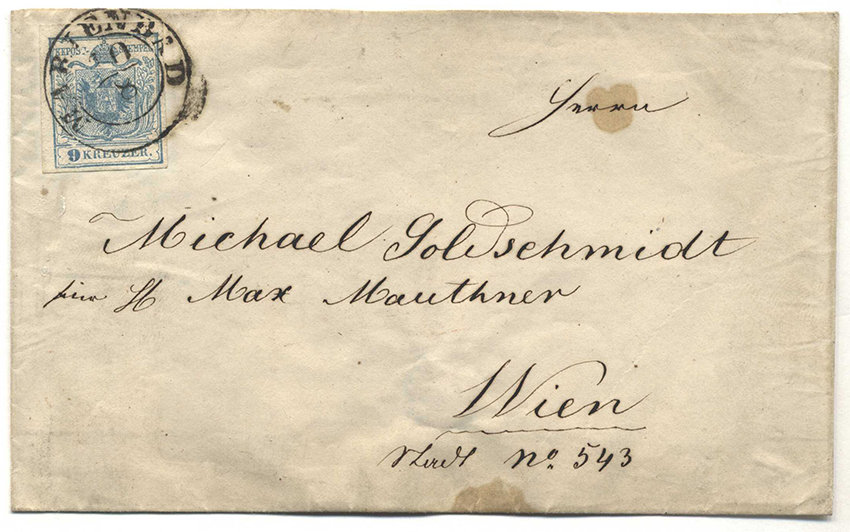 MARIENBAD
10/8
KKPOST-STEMPEL
9 KREUZER.
Herrn
Michael Goldschmidt
für H Max Mauthner
Wien
Stadt No. 543